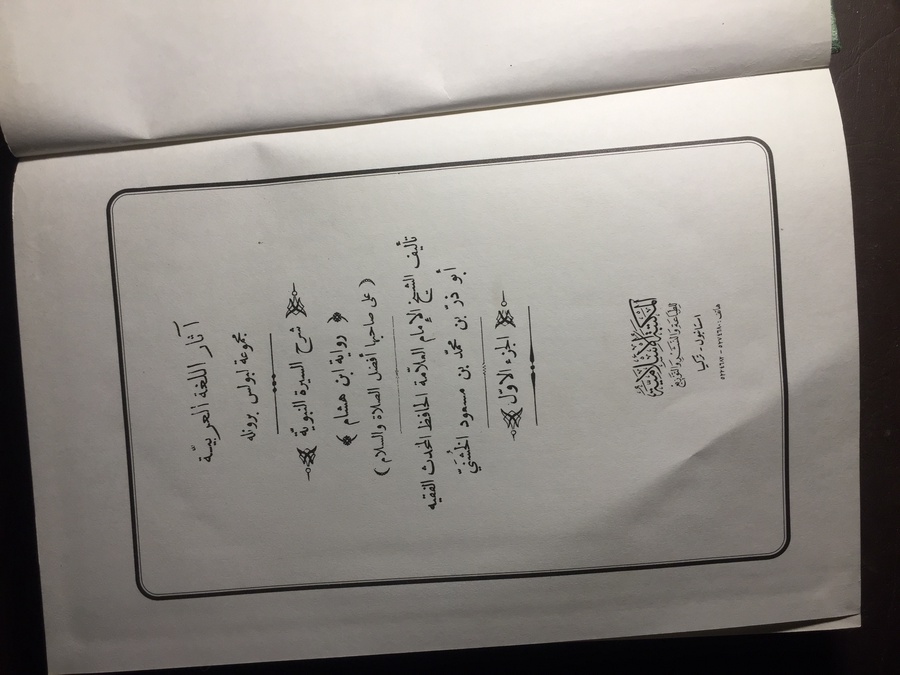 آثار اللغة العربيّة
مجموعة لبولس برونله
شرح السيرة النبوية
﴿ رواية ابن هشام ﴾
( على صاحبها أفضل الصلاة والسلام )
تأليف الشيخ الإمام العلامة الحافظ المحدث الفقيه
أبو ذرّ بن محمّد بن مسعود الخُشَنِيّ
الجزء الاوّل
المكتبة الإسلامية
للطباعة والنشر والتوزيع
استانبول - تركيا